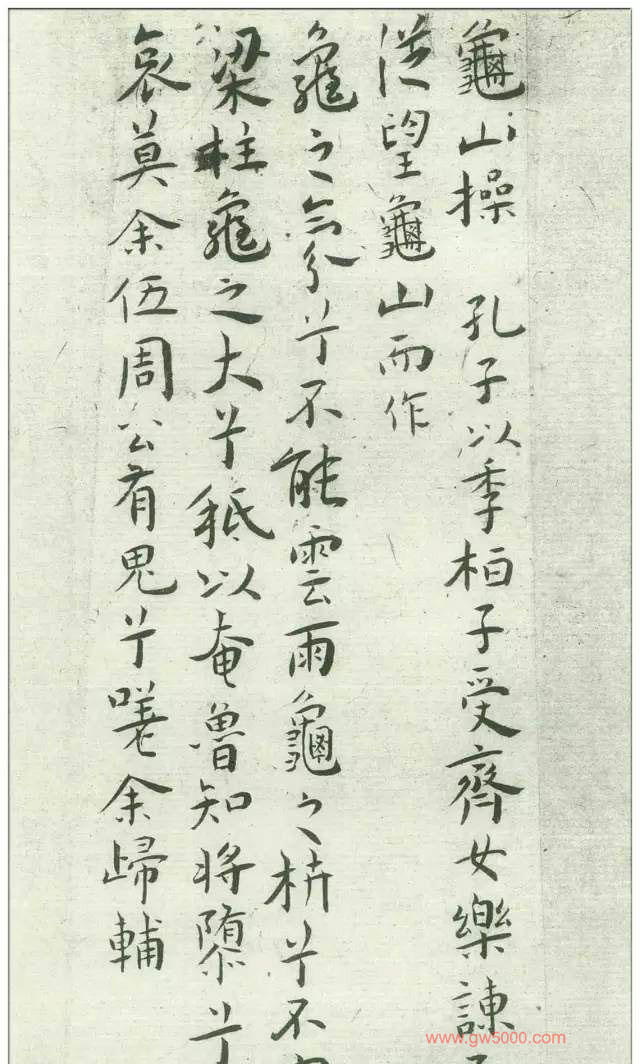 龜山操 孔子以季栢子受齊女樂諫
從望龜山而作
龜之氛兮不能雲雨龜之枿兮不
梁柱龜之大兮秖以奄魯知將隳兮
哀莫余伍周公有鬼兮嗟余歸輔
www.gw5000.com